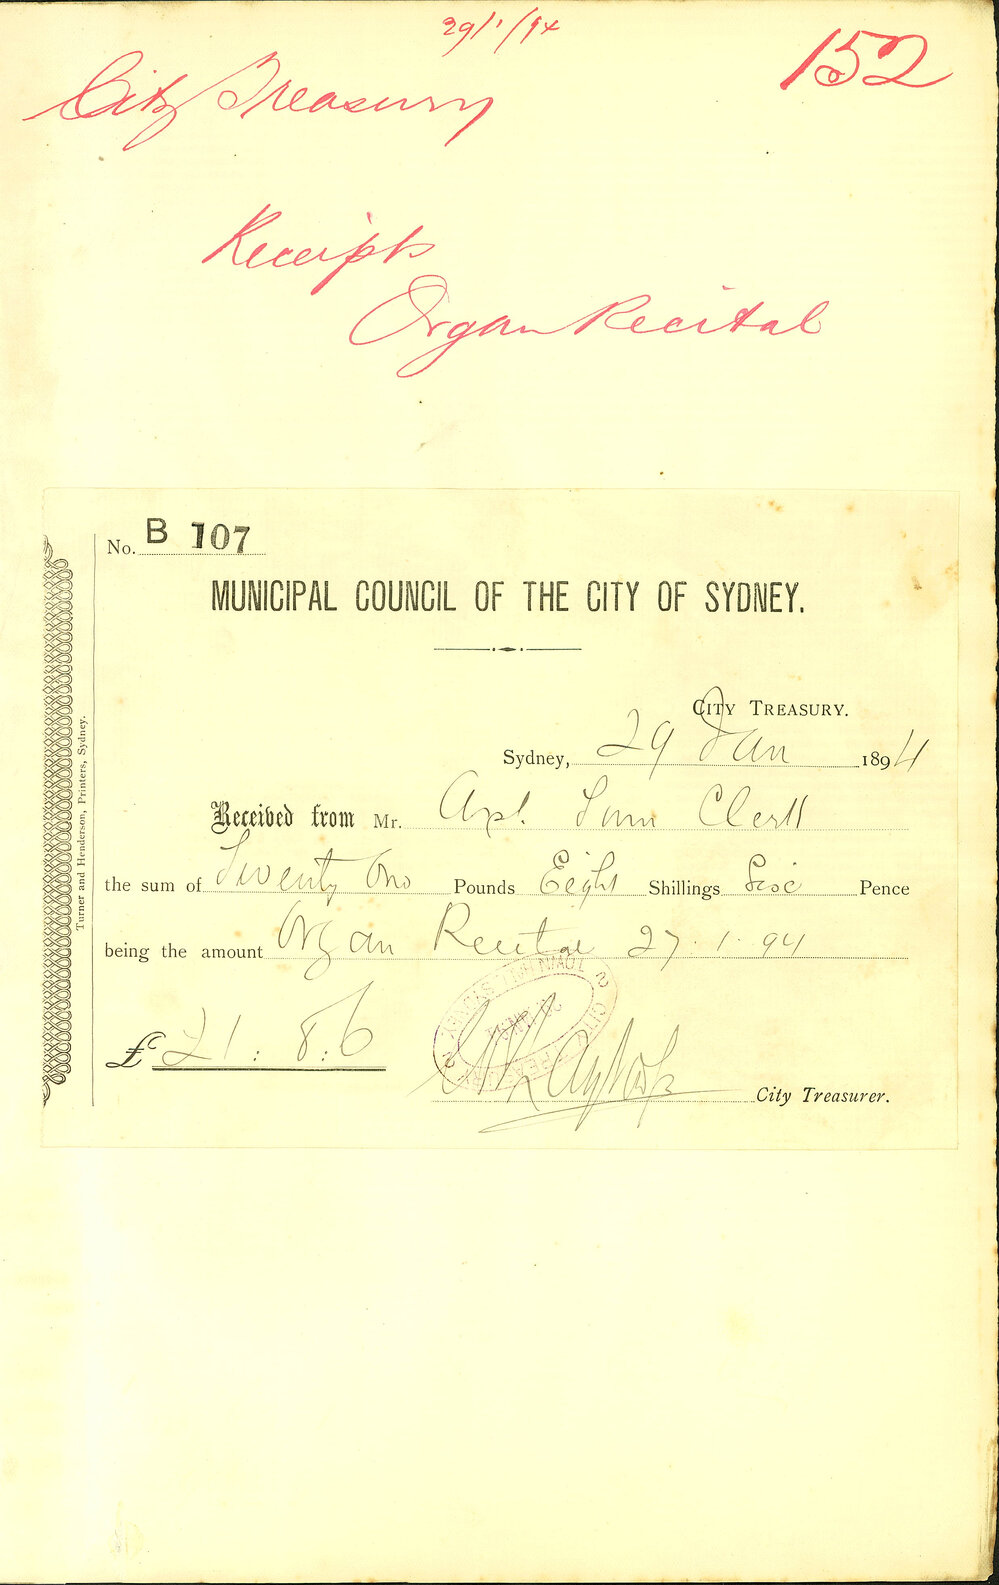 29/1/94
152
City Treasury
Receipts
Organ Recital
No. B 107
MUNICIPAL COUNCIL OF THE CITY OF SYDNEY.
CITY TREASURY.
Sydney, 29 Jan 1894
Received from Mr. Town Clerk
the sum of Twenty One Pounds Eight Shillings Six Pence
being the amount Organ Recital 27.1.94
£ 21:8:6
City Treasurer.
Turner and Henderson, Printers, Sydney.